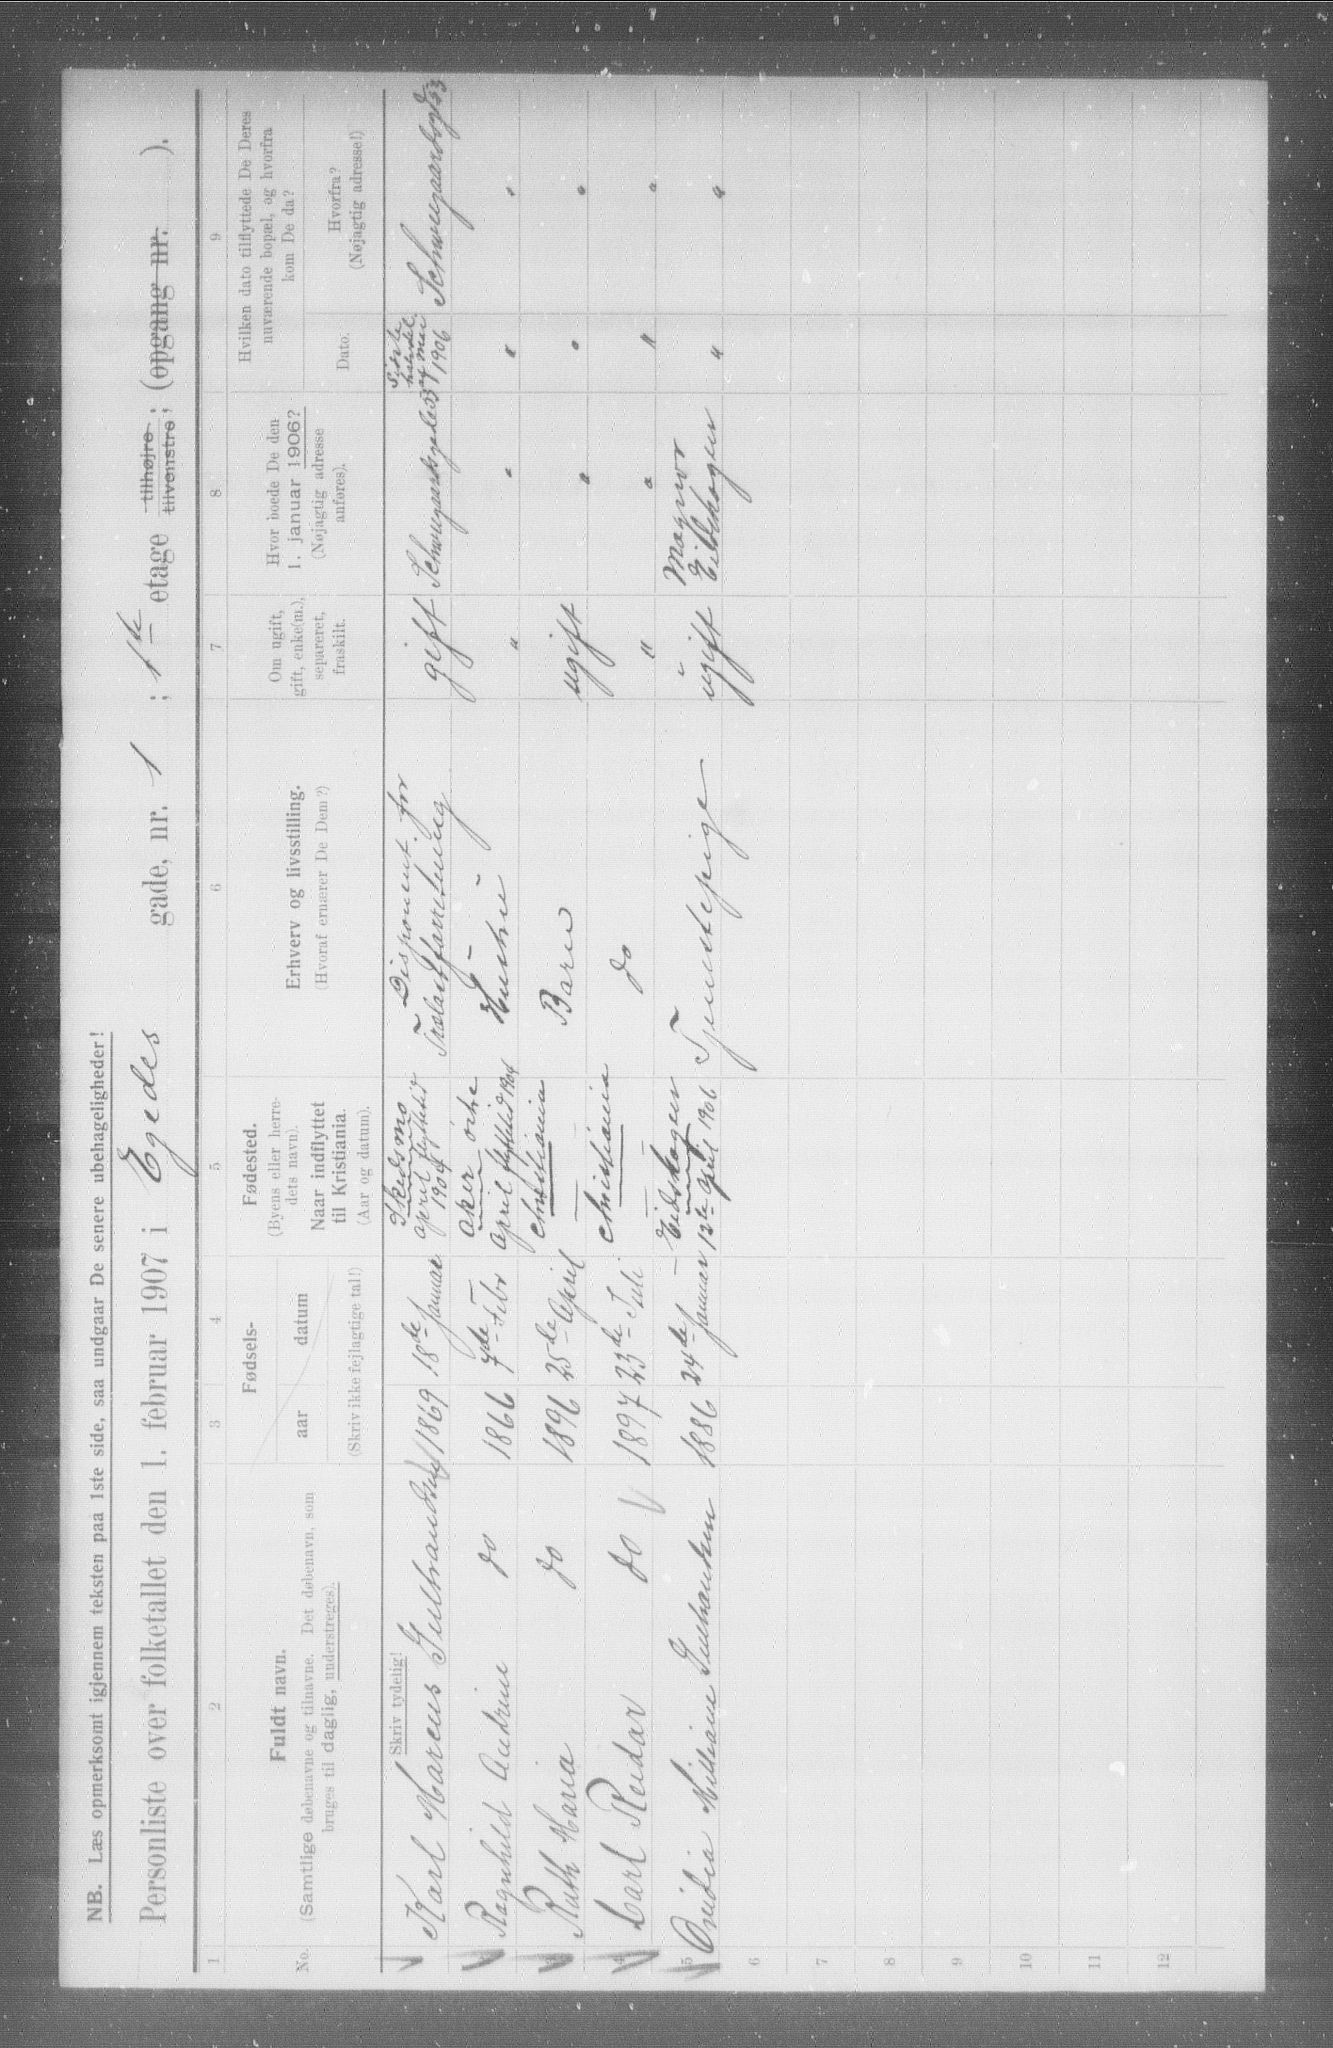 NB. Læs opmerksomt igjennem teksten paa 1ste side, saa undgaar De senere ubehageligheder!
Personliste over folketallet den 1. februar 1907 i Egedes gade, nr. 1 ; 1ste etage tilhøjre ; tilvenstre ; (opgang nr. ).
1 2 3 4 5 6 7 8 9
No.
Fuldt navn.
(Samtlige døbenavne og tilnavne. Det døbenavn, som
bruges til daglig, understreges).
Fødsels-
aar datum
(Skriv ikke fejlagtige tal!)
Fødested.
(Byens eller herre-
dets navn).
Naar indflyttet
til Kristiania.
(Aar og datum).
Erhverv og livsstilling.
(Hvoraf ernærer De Dem?)
Om ugift,
gift, enke(m.),
separeret,
fraskilt.
Hvor boede De den
1. januar 1906?
(Nøjagtig adresse
anføres).
Hvilken dato tilflyttede De Deres
nuværende bopæl, og hvorfra
kom De da?
Dato.
Hvorfra?
(Nøjagtig adresse!)
Skriv tydelig!
Karl Marcus 1869 18de Januar Skedsmo april flyttetid 1904 Disponent for gift 1906
Ragnhild Andrine do 1866 7de Febr Aker april flyttetid 1904 Hustru " " " "
3 Ruth Maria do 1896 25de April Christiania Barn ugift " " "
4 Carl Reidar do 1897 23de Juli Christiania do " " " "
5 1886 24de Januar Eidskogen 12te april 1906 Tjenestepige ugift Magnor i Eidskogen " "
6
7
8
9
10
11
12